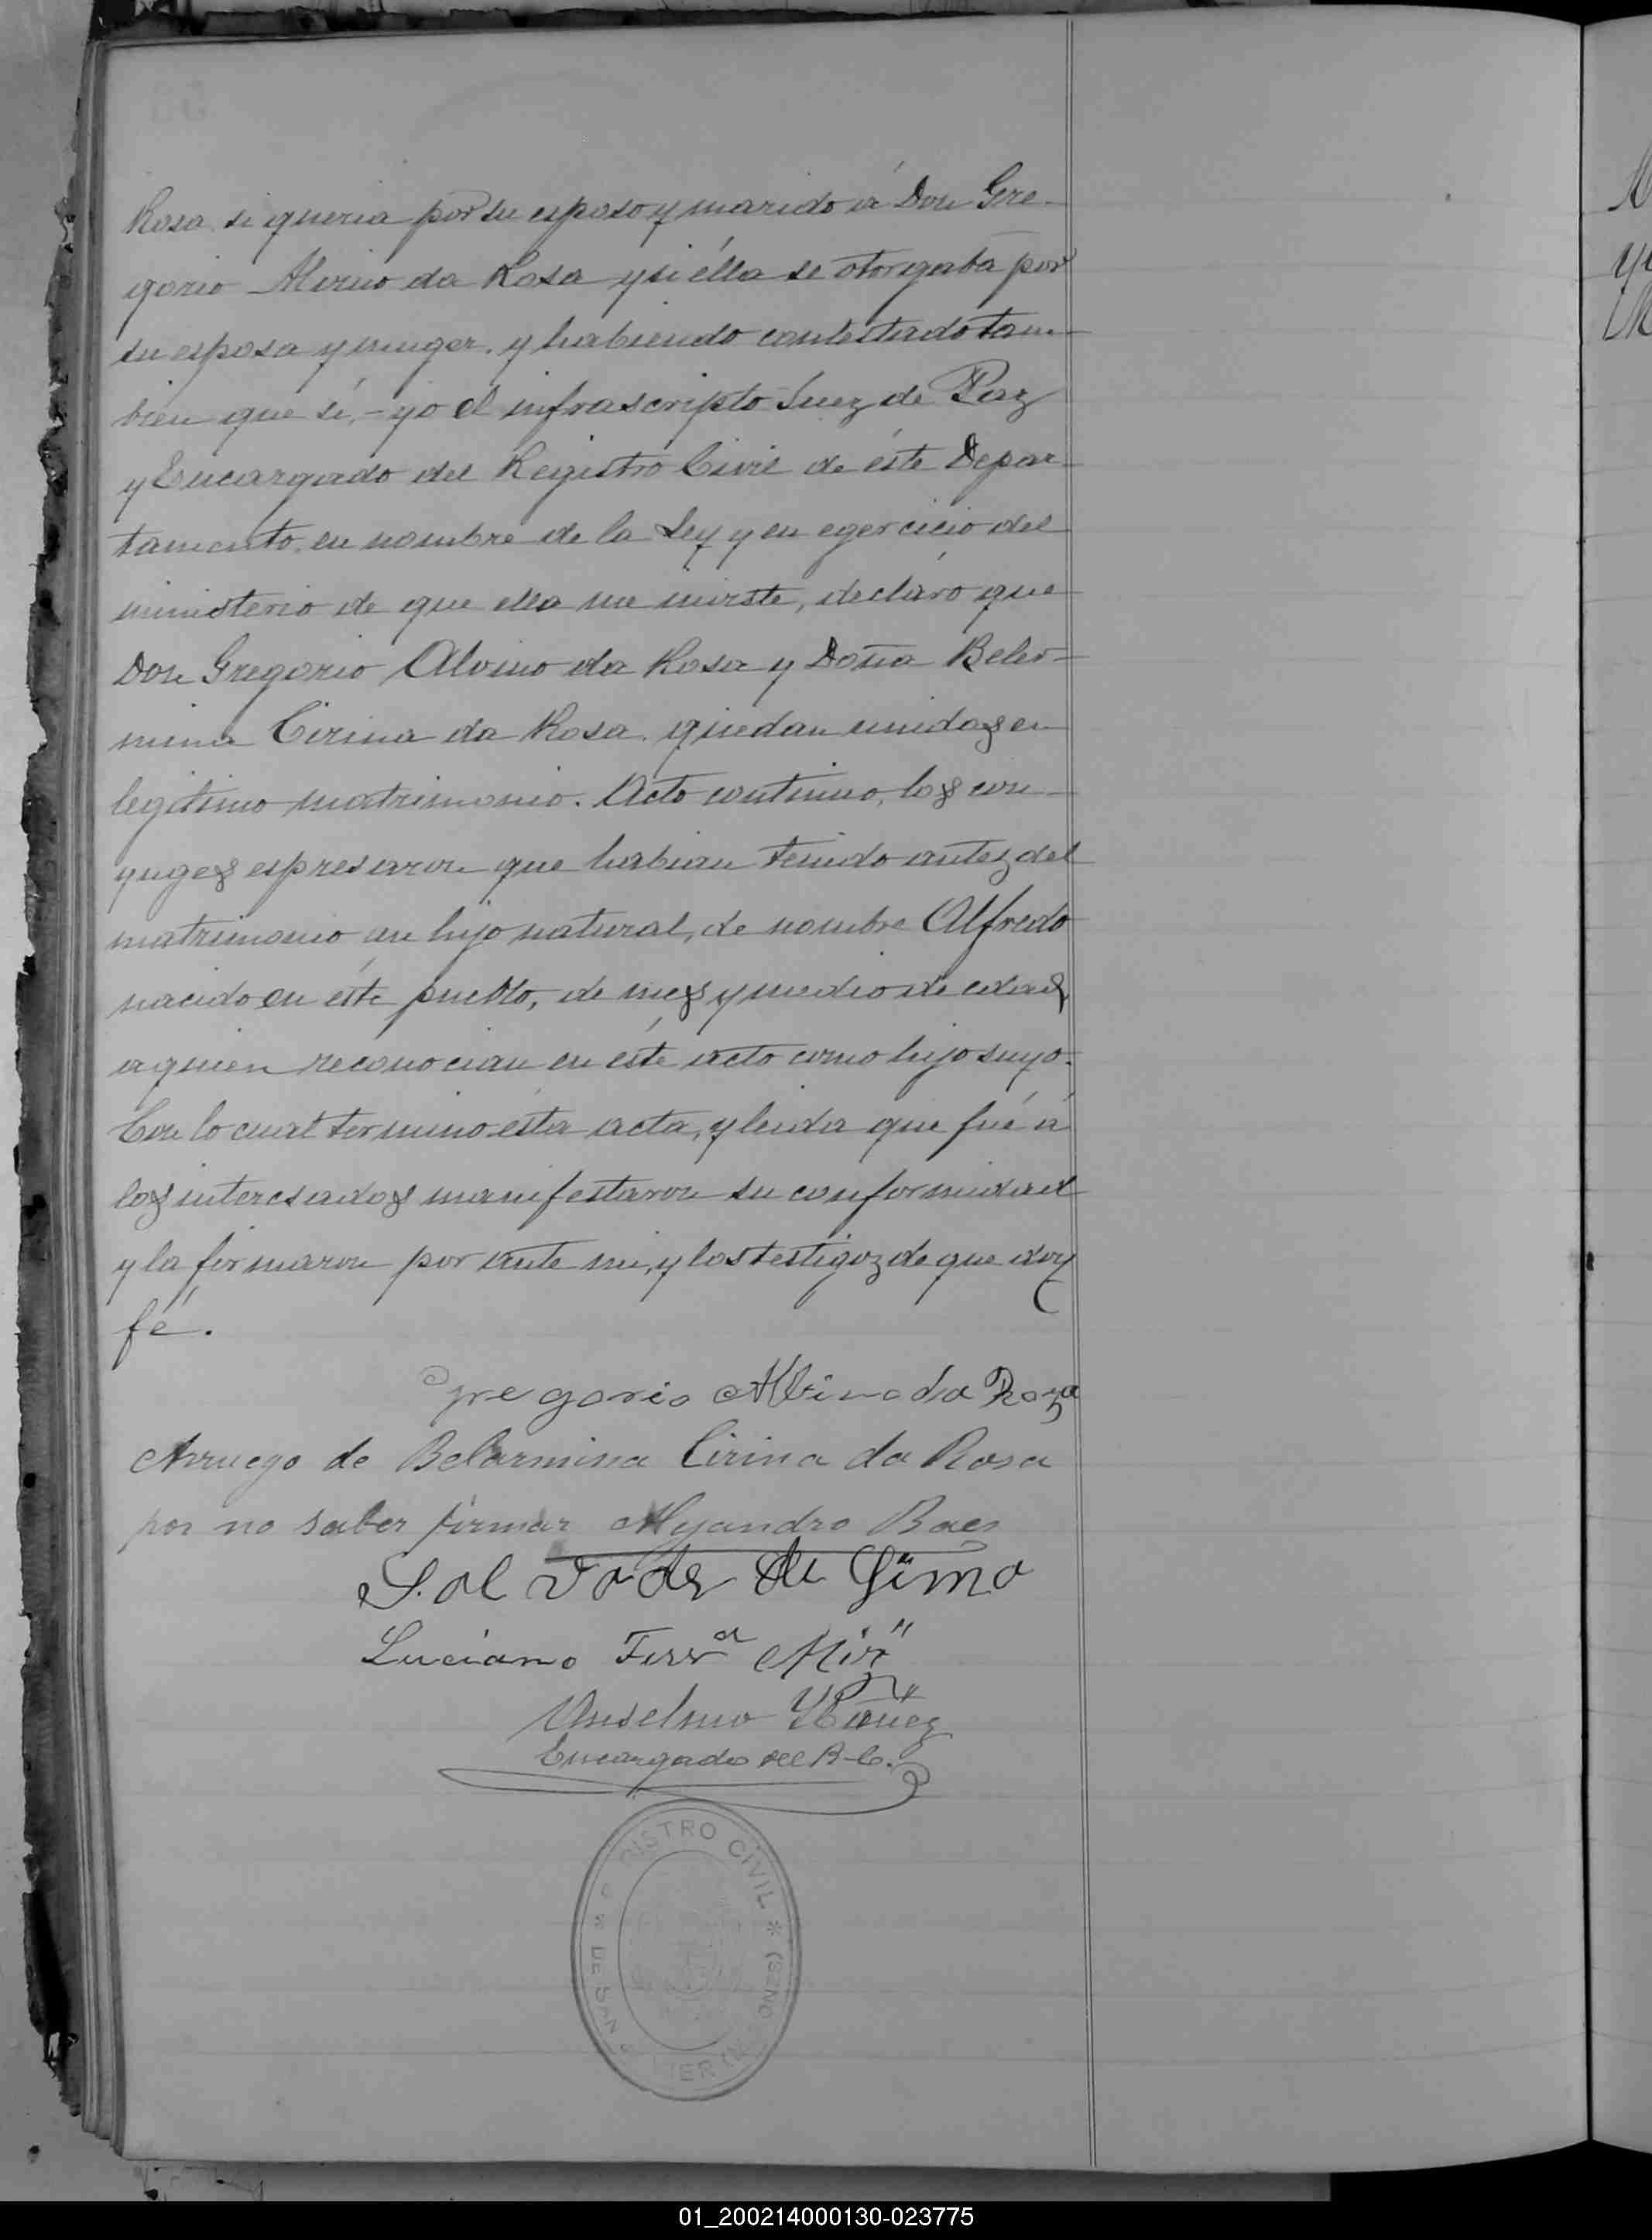 Rosa si queria por su esposo y marido á Don Gre-
gorio Alvino da Rosa y si élla se otorgaba por
su esposa y muger. y habiendo contestado tam-
bien que sí, - yo el infrascripto Juez de Paz
y Encargado del Registro Civil de éste Depar-
tamento, en nombre de la Ley y en egercicio del
ministerio de que ella me inviste, declaro que
Don Gregorio Alvino da Rosa y Doña Beler-
mina Cirina da Rosa. quedan unidos en
legitimo matrimonio. Acto continuo, los con-
yuges espresaron que habian tenido antes del
matrimonio un hijo natural, de nombre Alfredo
nacido en éste pueblo, de mes y medio de edad,
a quien reconocian en éste acto como hijo suyo.
Con lo cual termino ésta acta, y leida que fué á
los interesados manifestaron su conformidad
y la firmaron por ante mi, y los testigos de que doy
fé.
Gregorio Albino da Roza
Arruego de Belarmina Cirina da Rosa
por no saber firmar Alejandro Baes
Salvador de Gima
Luciano Ferra
Anselmo Ybañez
Encargado del R. C.
REGISTRO CIVIL * (SIONES)
DE SAN JAVIER
01_200214000130-023775